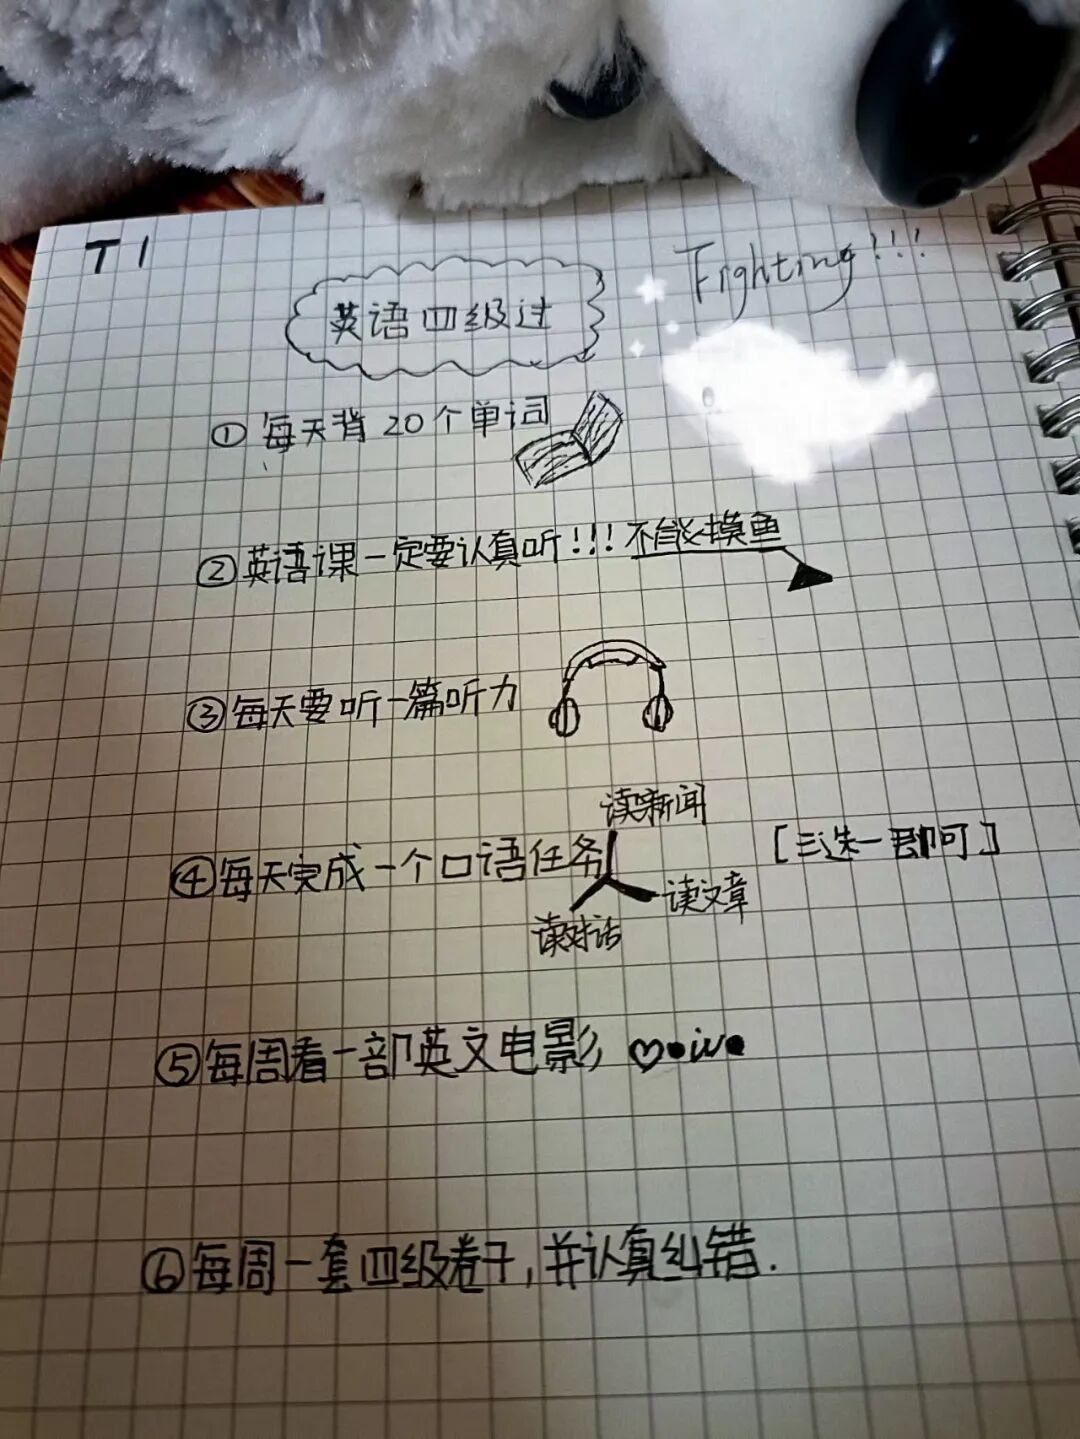 T1
Fighting!!!
英语四级过
①每天背20个单词
②英语课一定要认真听!!!不能摸鱼
③每天要听一篇听力
④每天完成一个口语任务
读新闻
读文章
读对话
[三选一即可]
⑤每周看一部英文电影
⑥每周一套四级卷子,并认真纠错.